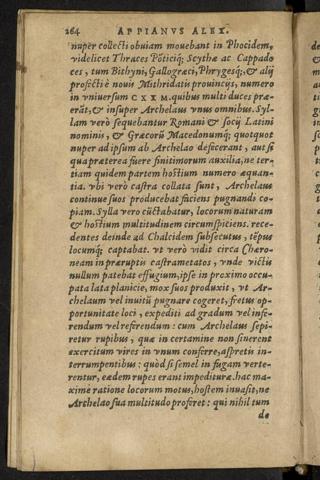 264 APPIANVS ALEX.
nuper collecti obuiam mouebant in Phocidem,
videlicet Thraces Põticiq; Scythæ ac Cappado
ces, tum Bithyni, Gallogræci, Phrygesq;, & alij
profecti è nouis Mithridatis prouincijs, numero
in vniuersum CXXM. quibus multi duces præ-
erãt, & insuper Archelaus vnus omnibus. Syl-
lam verò sequebantur Romani & socij Latini
nominis, & Græcorũ Macedonumq; quotquot
nuper ad ipsum ab Archelao defecerant, aut si
qua præterea fuere finitimorum auxilia, ne ter-
tiam quidem partem hostium numero æquan-
tia. vbi verò castra collata sunt, Archelaus
continue suos producebat faciens pugnandi co-
piam. Sylla vero cũctabatur, locorum naturam
& hostium multitudinem circumspiciens. rece-
dentes deinde ad Chalcidem subsecutus, tẽpus
locumq; captabat. vt verò vidit circa Chæro-
neam in præruptis castrametatos, vnde victis
nullum patebat effugium, ipse in proximo occu-
pata lata planicie, mox suos produxit, vt Ar-
chelaum vel inuitũ pugnare cogeret, fretus op-
portunitate loci, expediti ad gradum vel infe-
rendum vel referendum: cum Archelaus sepi-
retur rupibus, quæ in certamine non sinerent
exercitum vires in vnum conferre, aspretis in-
terrumpentibus: quòd si semel in fugam verte-
rentur, eædem rupes erant impedituræ. hac ma-
xime ratione locorum motus, hostem inuasit, ne
Archelao sua multitudo prosit: qui nihil tum
de